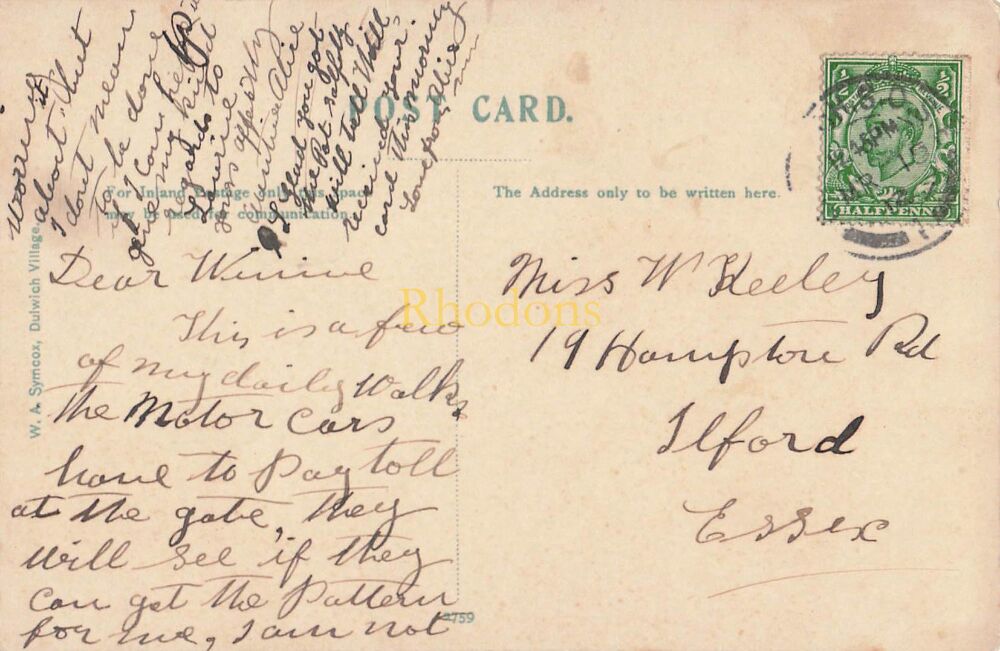 POST CARD.
For Inland Postage only this space
may be used for communication.
The Address only to be written here.
Dear Winnie
This is a few
of my daily Walks,
the Motor Cars
have to pay toll
at the gate, they
will see if they
can get the Pattern
for me, I am not
worried
about it but
I dont mean
to be done
if I can help it
give my kind
regards to
Laurie
yours affect
Auntie Alice
Glad you got
the Pot safely
will tell Will
received your
card this morning
Love from Alice
Miss W Keeley
19 Hampton Rd
Ilford
Essex
W. A. Symcox, Dulwich Village.
½ ½
HALFPENNY
MAR
15
12
Rhodons